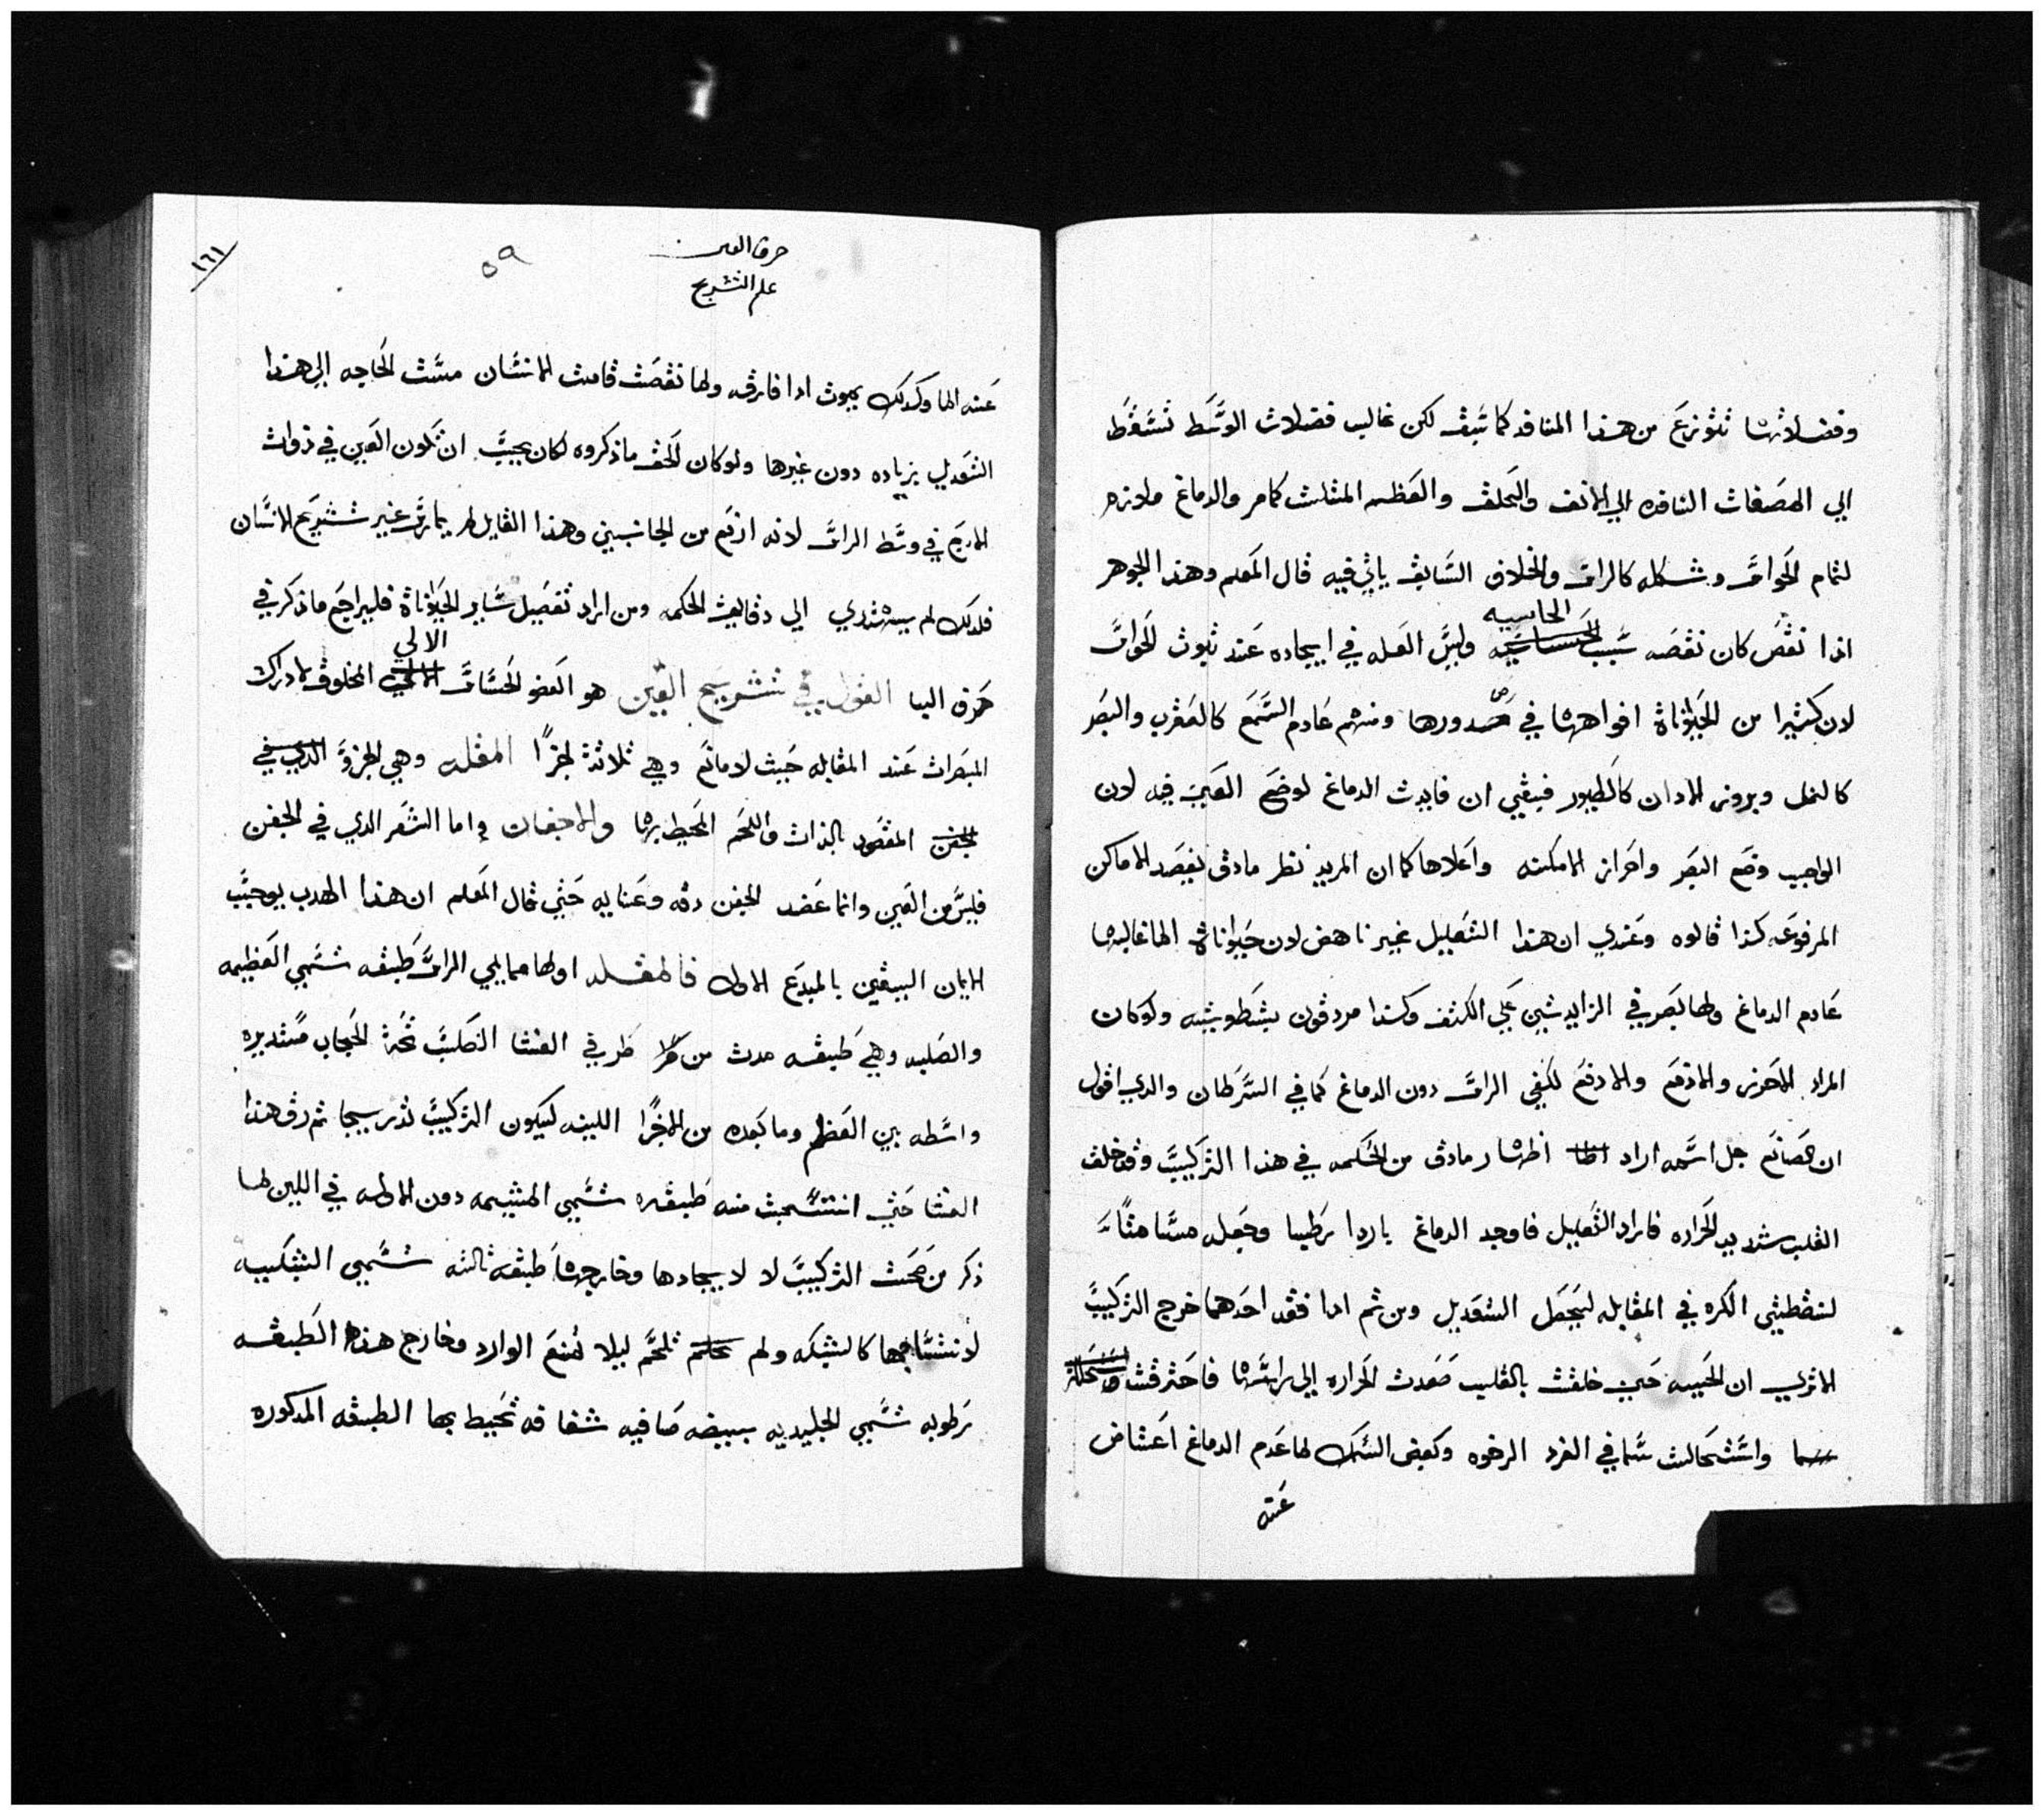 وفضلاتها تتوزع من هذا المنافد كما سبق لكن غالب فضلات الوسط تسقط
الي المصفات النافده الي الانف والحلق والعظم المثلث كمامر والدماغ ملازم
لتمام الحواس وشكله كالراس والخلاف السابق ياتي فيه قال المعلم وهذا الجوهر
الحاسيه
اذا نقص كان نقصه سبب وليس العله في ايجاده عند ثبوت الحواس
لان كثيرا من الحيواناة افواهها في صدورها ومنهم عادم السمع كالعقرب والبصر
كالنمل وبروز الادان كالطيور فبقيي ان فايدت الدماغ لوضع العين فيه لان
الواجب وضع البصر واحراز الامكنه واعلاها كما ان المريد نظر مادق يقصد الاماكن
المرفوعه كذا قالوه وعندي ان هذا التعليل غير ناهض لان حيواناة الما غالبها
عادم الدماغ ولها بصر في الزايدتين علي الكتف وكذا مردقون بشطوبثيه ولوكان
المراد الاحرز والانفع والارفع لكفي الراس دون الدماغ كما في السرطان والدي اقول
ان الصانع جل اسمه اراد اظهار مادق من الحكمه في هذا التركيب وقد خلق
القلب شديد الحراره فاراد التعديل فاوجد الدماغ باردا رطبا وجعله مسامتا
لنقطتي الكره في المقابله ليحصل التعديل ومن ثم ادا فقد احدهما خرج التركيب
الاتري ان الحيه حين خلقت بالقلب صعدت الحراره الي راسها فاحترقت
واستحالت سما في الغرد الرخوه وكبعض السمك لما عدم الدماغ اعتاض
عنه
حرف العين
علم التشريح
٥٩
١٦١
عنه الما وكدلك يموت ادا فارقه ولما نقصت قامت الانسان مست الحاجه الي هذا
التعديل بزياده دون غيرها ولو كان الحق ماذكروه لكان يجب ان تكون العين في ذوات
الاربع في وسط الراس لانه ارفع من الجانبين وهذا القايل لم يمارس غير تشريح الانسان
فلدلك لم يهتدي الي دقايق الحكمه ومن اراد تفصيل ساير الحيواناة فليراجع ماذكر في
الالي
حرف اليا القول في تشريح العين هو العضو الحساس المخلوق لادراك
المبصرات عند المقابله حيث لامانع وهي ثلاثة اجزا المقله وهي الجزو
المقصود بالذات واللحم المحيط بها والاجفان واما الشعر الدي في الجفن
فليس من العين وانما عضد الجفن دقه وعنايه حتي قال المعلم ان هذا الهدب يوجب
الايمان اليقين بالمبدع الاول فالمقله اولها ممايلي الراس طبقه تسمي العظيمه
والصلبه وهي طبقه مدت من طرفي الغشا الصلب تحة الحجاب مستديره
واسطه بين العظم ومابعده من الاجزا اللينه ليكون التركيب تدريجا ثم رق هذا
الغشا حتي انتسجت منه طبقه تسمي المشيمه دون الاوله في اللين لما
ذكر من صحت التركيب لا لايجادها وخارجها طبقه ثالثه تسمي الشبكيه
لانتساجها كالشبكه ولم تلحم ليلا تمنع الوارد وخارج هذه الطبقه
رطوبه تسمي الجليديه بيضه صافيه شفافه تحيط بها الطبقه المدكوره